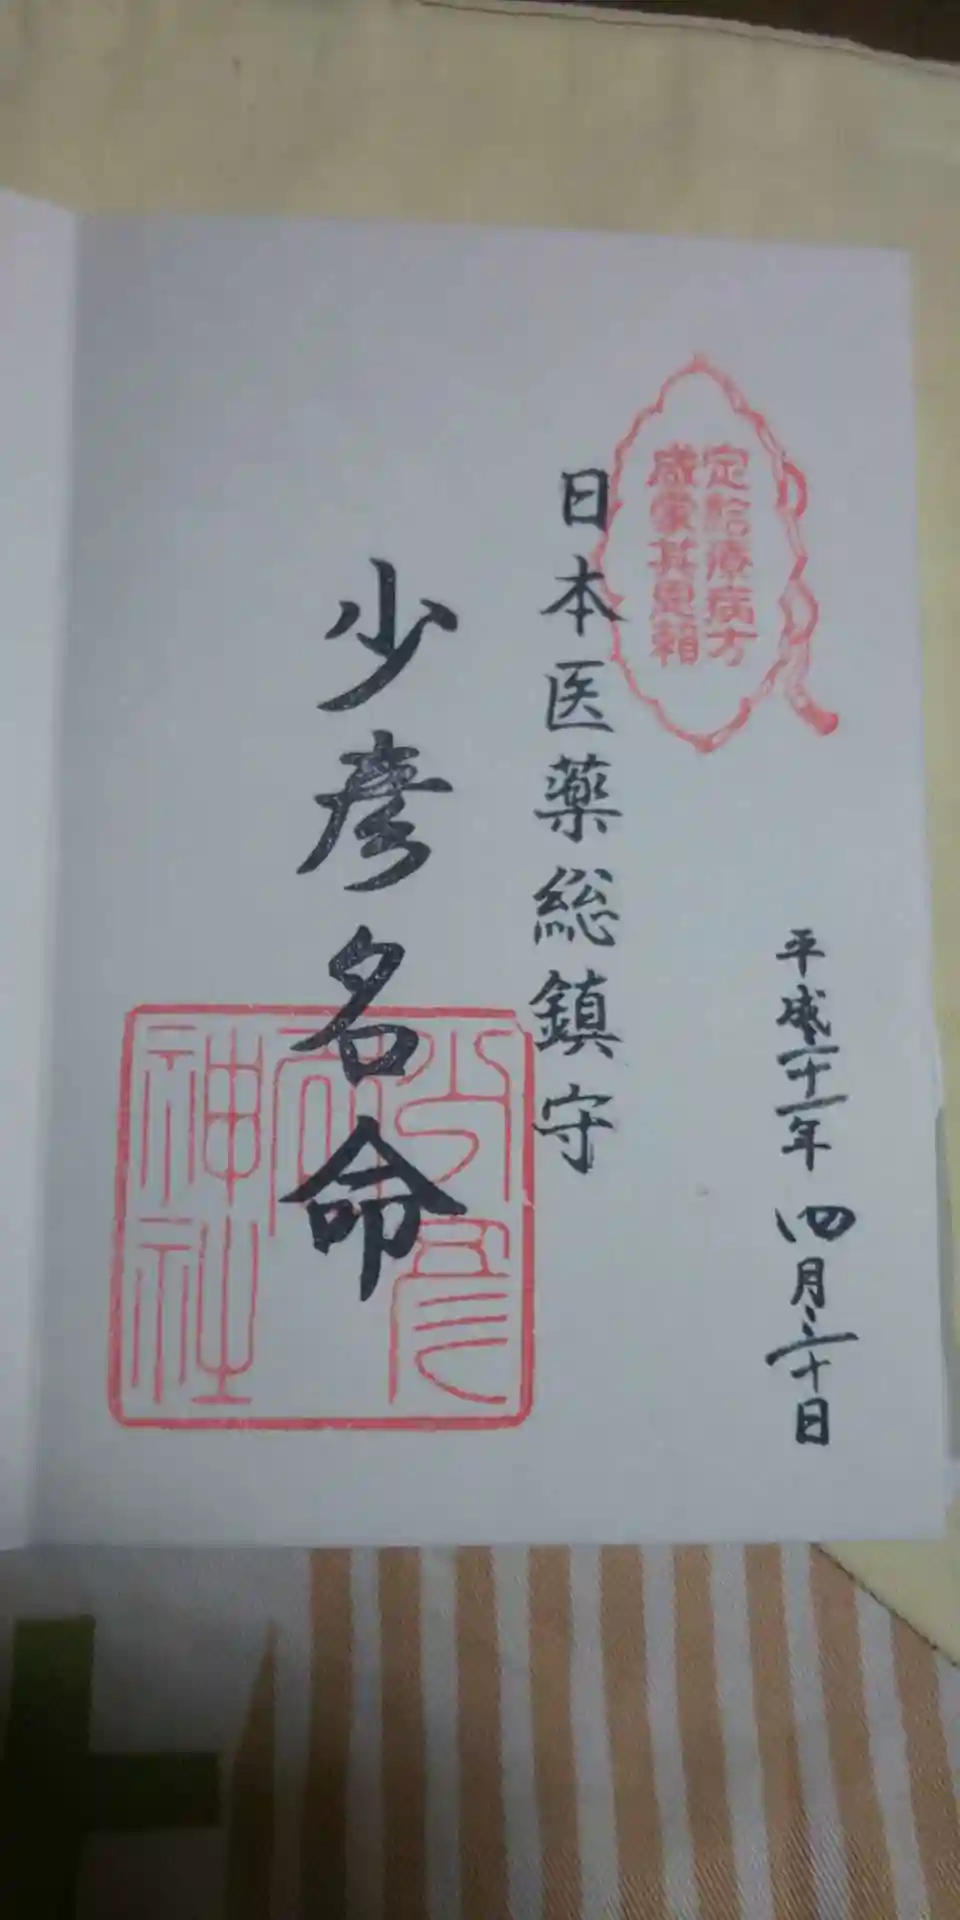 平成二十一年四月三十日
定給療病方
咸蒙其恩頼
日本医薬総鎮守
少彦名命
少彦
名
神社